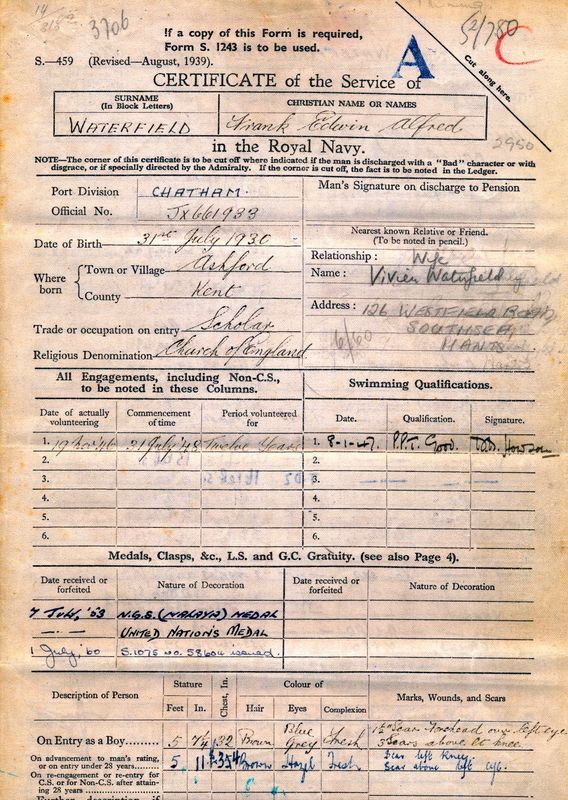 3706
If a copy of this Form is required,
Form S. 1243 is to be used.
S.—459 (Revised—August, 1939).
A
C
2/780
Cut along here.
CERTIFICATE of the Service of
SURNAME
(In Block Letters)
CHRISTIAN NAME OR NAMES
WATERFIELD
Frank Edwin Alfred
in the Royal Navy.
2950
NOTE—The corner of this certificate is to be cut off where indicated if the man is discharged with a "Bad" character or with
disgrace, or if specially directed by the Admiralty. If the corner is cut off, the fact is to be noted in the Ledger.
Port Division CHATHAM.
Official No. Jx661933
Man's Signature on discharge to Pension
Date of Birth 31st July 1930
Where born
Town or Village Ashford
County Kent
Trade or occupation on entry Scholar
Religious Denomination Church of England
Nearest known Relative or Friend.
(To be noted in pencil.)
Relationship : Wife
Name : Vivien Waterfield
Address : 126 WESTFIELD ROAD
SOUTHSEA
HANTS
6/60
All Engagements, including Non-C.S.,
to be noted in these Columns.
Date of actually volunteering
Commencement of time
Period volunteered for
1. 19 Nov '46 31 July '48 Twelve Years
2.
3.
4.
5.
6.
Swimming Qualifications.
Date. Qualification. Signature.
1. 8-1-47. P.P.T. Good.
2.
3.
4.
5.
6.
Medals, Clasps, &c., L.S. and G.C. Gratuity. (see also Page 4).
Date received or forfeited
Nature of Decoration
Date received or forfeited
Nature of Decoration
7 July, '53 N.G.S. (MALAYA) MEDAL
—·— UNITED NATIONS MEDAL
1 July, '60 S.1075 no. 58604 issued.
Description of Person
Stature
Feet In.
Chest, In.
Colour of
Hair Eyes Complexion
Marks, Wounds, and Scars
On Entry as a Boy......... 5 7¼ 32 Brown Blue Grey Fresh
1½" Scar forehead over left eye
3 Scars above lt knee.
On advancement to man's rating,
or on entry under 28 years
5. 11 Brown Hazel Fresh
Scar left knee.
Scar above left eye.
On re-engagement or re-entry for
C.S. or for Non-C.S. after attain-
ing 28 years
Further description if